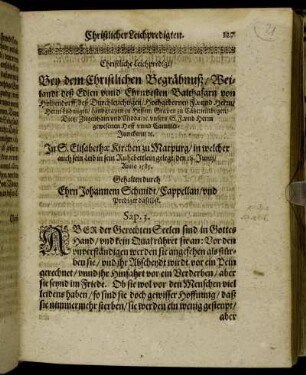 Christlicher Leichpredigten. 127
Christliche Leichpredigt/
Bey dem Christlichen Begräbnuß/ Wei-
landt deß Edlen vnnd Ehrnvesten Balthasarn von
deß Durchleuchtigen/ Hochgebornen F. vnnd Herrn/
Herrn Ludwigen/ Landtgraven zu Hessen/ Graven zu Catzenelnbogen/
Dietz/ Ziegenhain vnd Nidda/ ꝛc. vnsers G. F. vnnd Herrn
gewesenen Hoff vnnd Cammer-
Junckern/ ꝛc.
In S. Elisabethæ Kirchen zu Marpurg/ in welcher
auch sein Leib in sein Ruhebettlein gelegt/ den Junij/
Anno
Gehalten durch
Ehrn Johannem Schmidt/ Cappellan/ vnd
Prediger daselbst.
Sap. 3.
ABER der Gerechten Seelen sind in Gottes
Hand/ vnd kein Qual rühret sie an: Vor den
vnverständigen werden sie angesehen als stür-
ben sie/ vnd ihr Abscheydt wirdt vor ein Pein
gerechnet/ vnnd ihr Hinfahrt vor ein Verderben/ aber
sie seynd im Friede. Ob sie wol vor den Menschen viel
leidens haben/ so sind sie doch gewisser Hoffnung/ daß
sie nimmermehr sterben/ sie werden ein wenig gesteupt/
aber